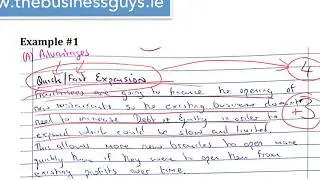 w.thebusinessguys.ie
Example #1
(A) Advantages
Quick/Fast Expansion 4
Franchisees are going to finance the opening of
new restaurants so the existing business doesn't
need to increase Debt or Equity in order to +3
expand which could be slow and limited.
This allows more new branches to open more
quickly than if they were to open them from
existing profits over time.